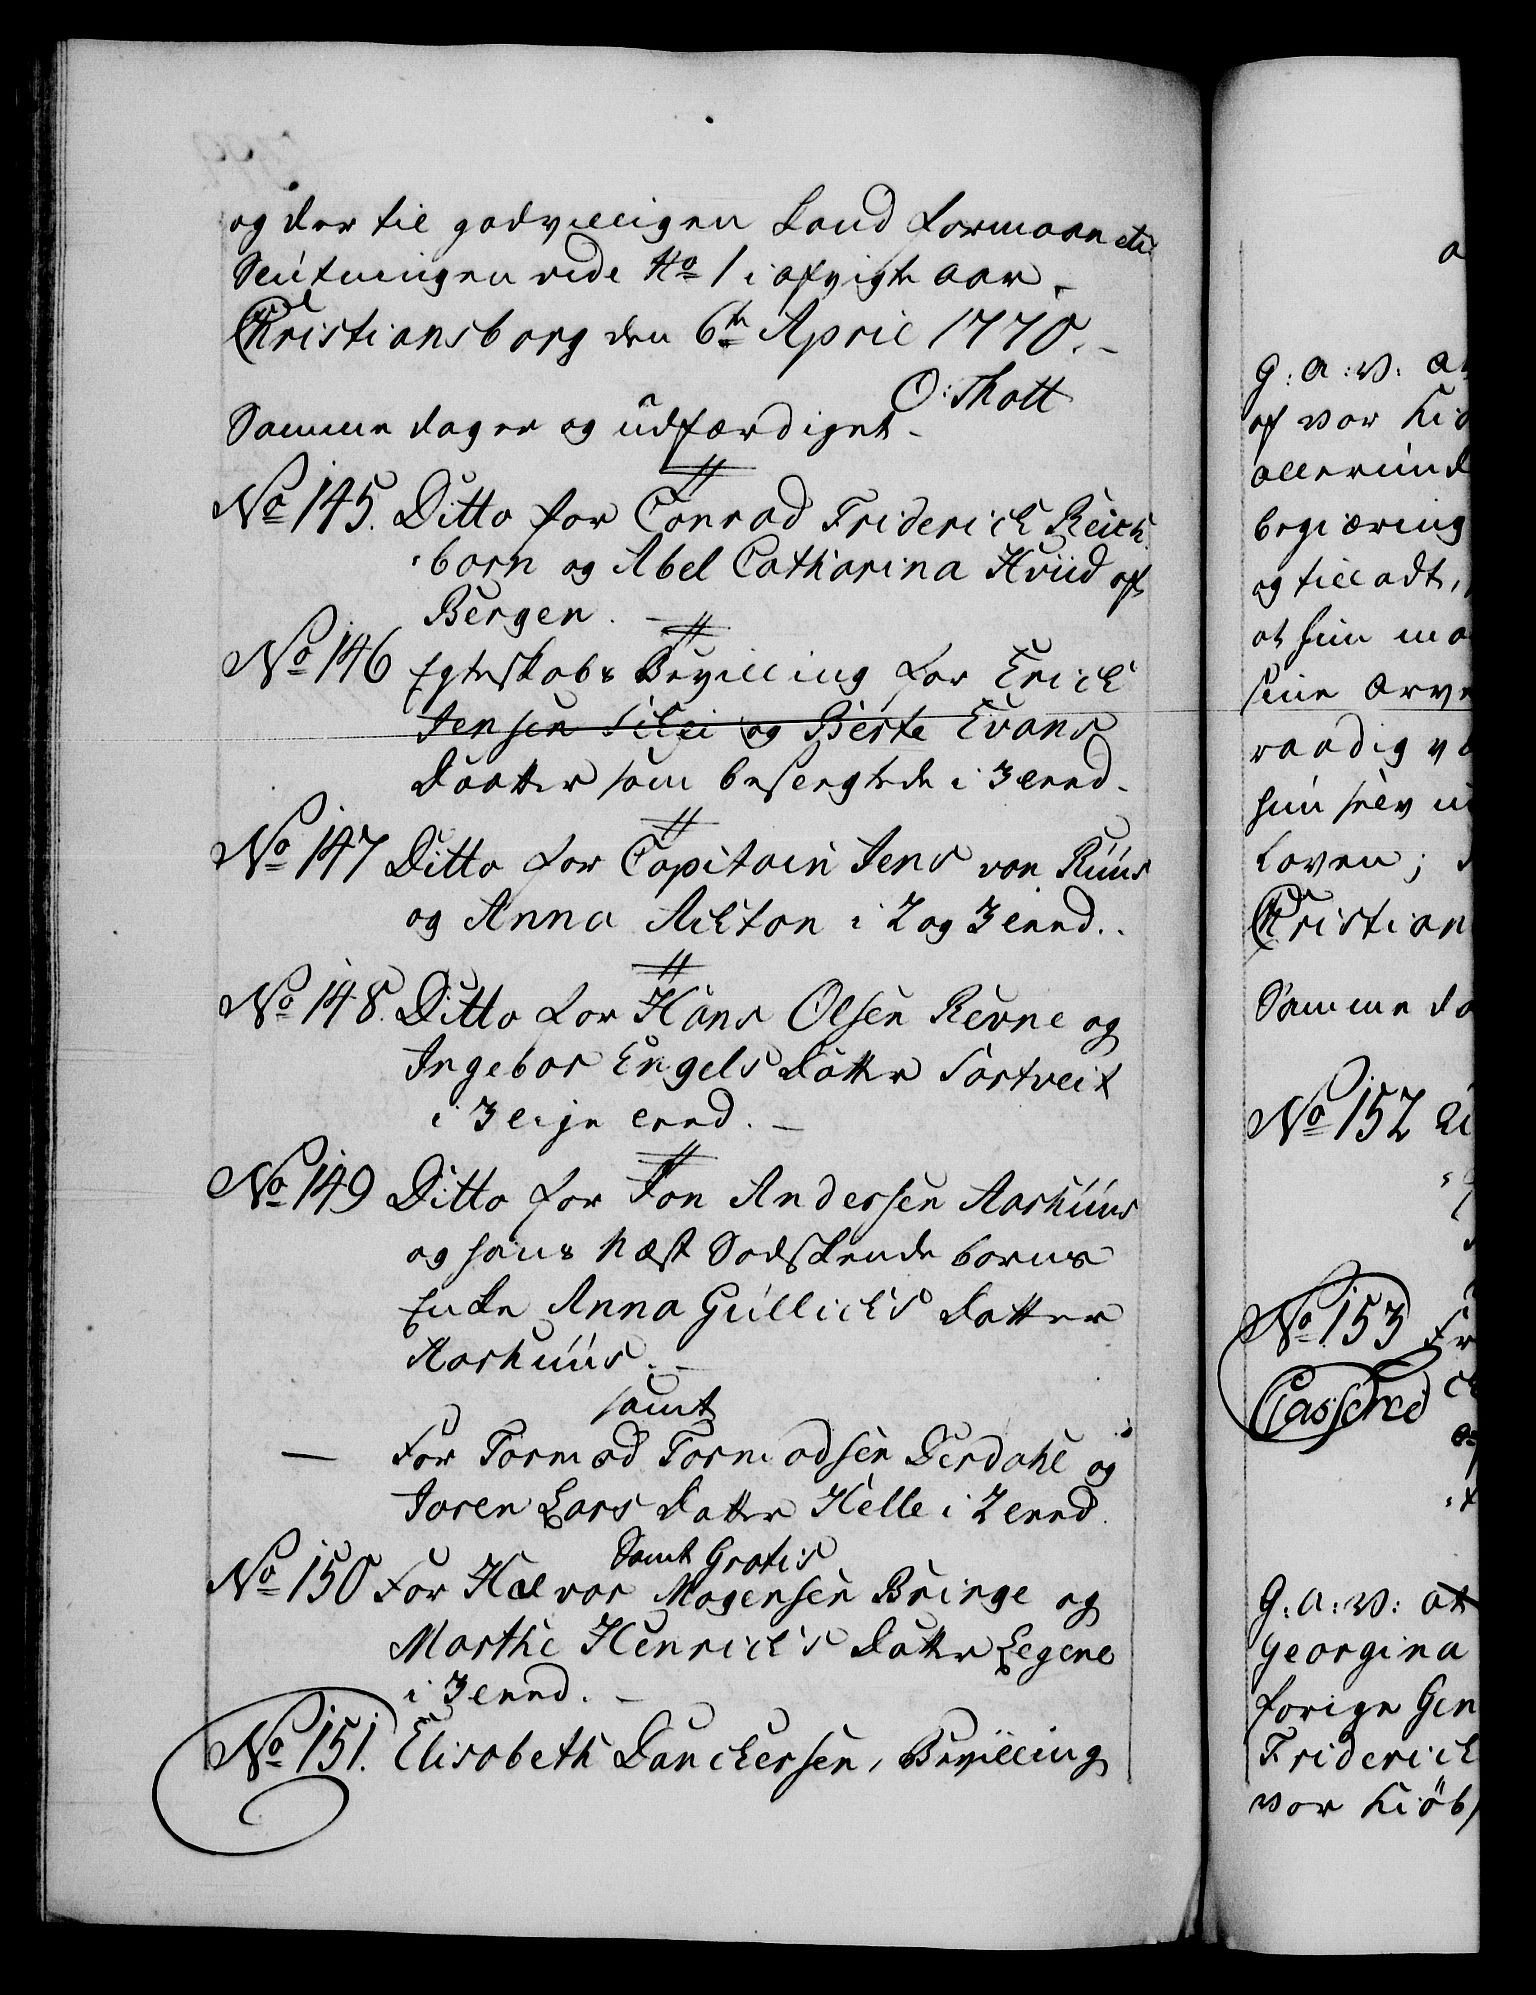 og der til godvilligen Land formaaer etc
Slutningen vide No 1 i afvigte aar.
Christiansborg den 6te April 1770.
O: Thott
Samme dager og udfærdiget.
No 145. Ditto for Conrad Friderich Reich
born og Abel Catharina Hviid af
Bergen.
No 146 Egteskabs Bevilling for Erich
Jensen Silei og Berte Evans
Daatter som beslegtede i 3 leed.
No 147 Ditto for Capitain Jens von Ruus
og Anna Ackton i 2 og 3 leed.
No 148. Ditto for Hans Olsen Revne og
Ingebor Engels Datter Sortveit
i 3 lige leed.
No 149 Ditto for Jon Andersen Aarhuus
og hans Næst Sødskende børns
Enke Anna Gullichs Datter
Aarhuus.
samt
For Tormod Tormodsen Derdahl og
Joren Lars Datter Helle i 2 leed.
Samt Gratis
No 150 For Halvor Mogensen Bringe og
Marthe Henrichs Datter Legene
i 3 leed.
No 151. Elisabeth Danckersen, Bevilling
G: A: V: at
af vor Ki
allerund
begiering
og tilladt,
at hun ma
sine Arve
raadig v
hun selv u
Loven;
Christian
Samme da
No 152
No 153 Fr
Casseres
G: A: V: at
Georgina
forige Gen
Friderich
vor Kiøb